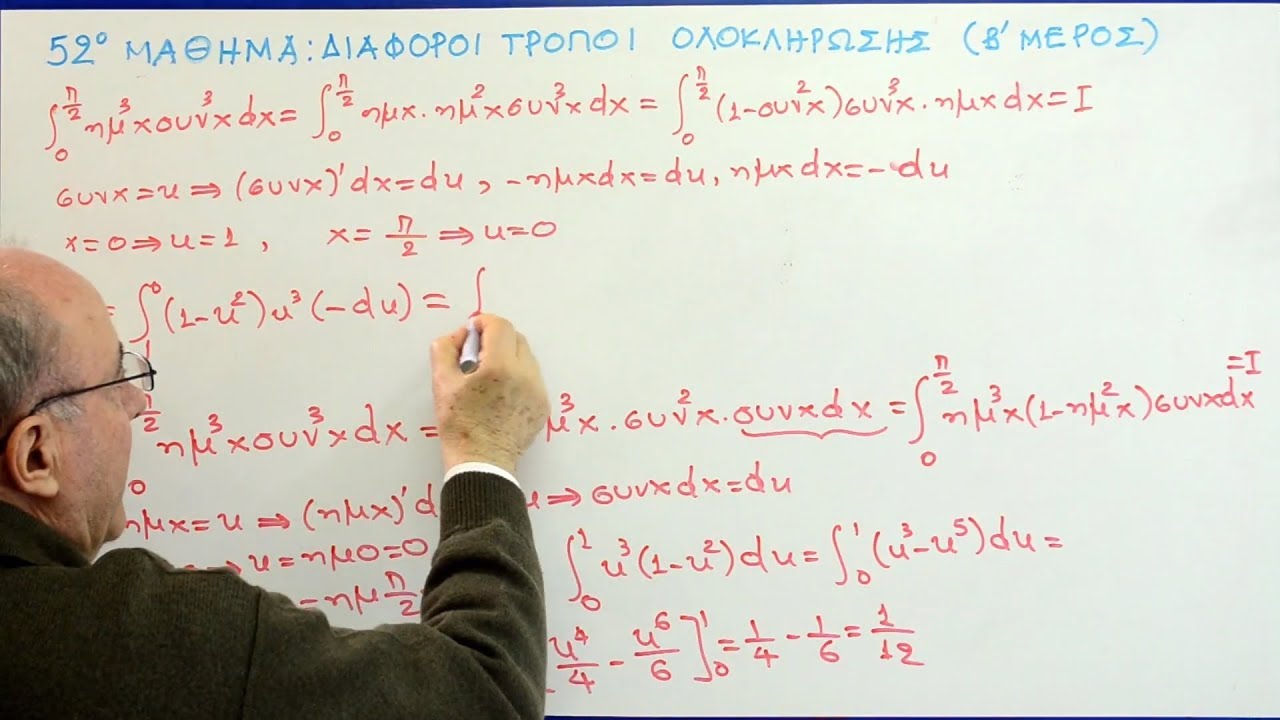 52ο ΜΑΘΗΜΑ: ΔΙΑΦΟΡΟΙ ΤΡΟΠΟΙ ΟΛΟΚΛΗΡΩΣΗΣ (Β' ΜΕΡΟΣ)
∫₀^{π/2} ημ³x συν³x dx = ∫₀^{π/2} ημx · ημ²x συν³x dx = ∫₀^{π/2} (1-συν²x) συν³x · ημx dx = I
συνx = u ⇒ (συνx)' dx = du, -ημx dx = du, ημx dx = -du
x = 0 ⇒ u = 1, x = π/2 ⇒ u = 0
= ∫₁⁰ (1-u²) u³ (-du) = ∫
= I
π/2 ημ³x συν³x dx = μ³x · συν²x · συνx dx = ∫₀^{π/2} ημ³x (1-ημ²x) συνx dx
0
ημx = u ⇒ (ημx)' d u ⇒ συνx dx = du
⇒ u = ημ0 = 0 ∫₀¹ u³ (1-u²) du = ∫₀¹ (u³-u⁵) du =
= ημ π/2 u⁴/4 - u⁶/6 ]₀¹ = 1/4 - 1/6 = 1/12